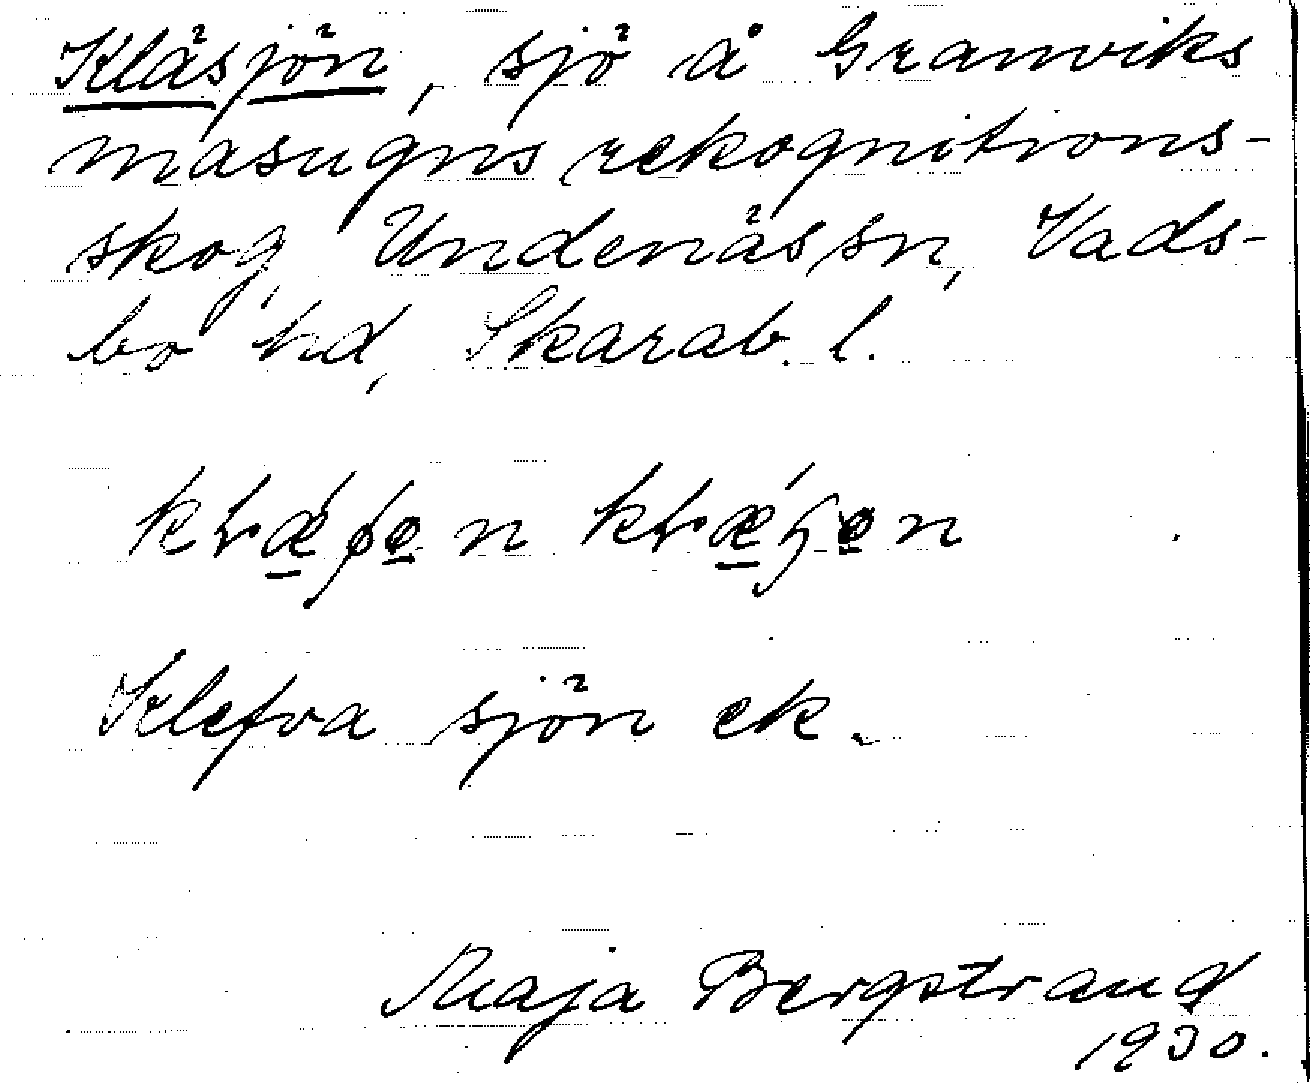 Kläsjön, sjö å Granviks
masugns rekognitions-
skog, Undenäs sn, Vads-
bo hd, Skarab. l.
Klefva sjön ek.
Maja Bergstrand
1930.